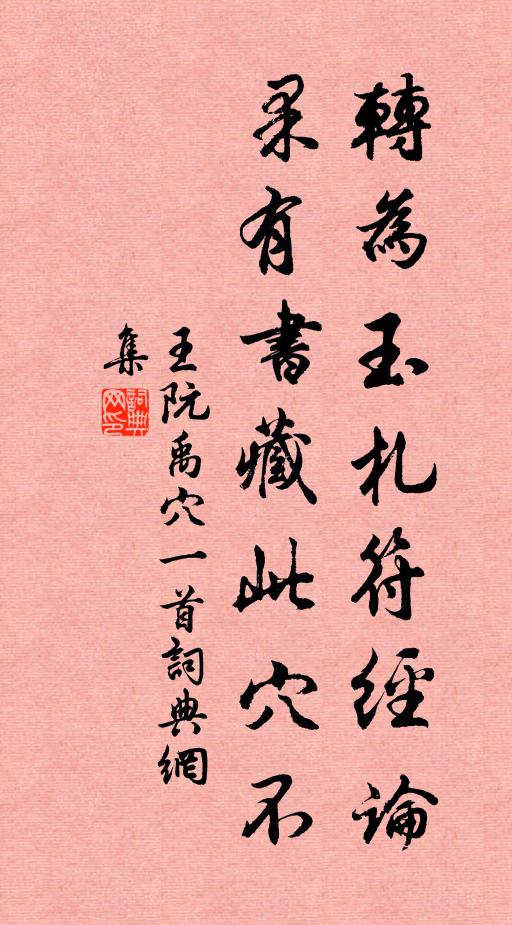 轉為玉札符經論
果有書藏此穴不
王阮禹穴一首詞典網
集
詞典網印